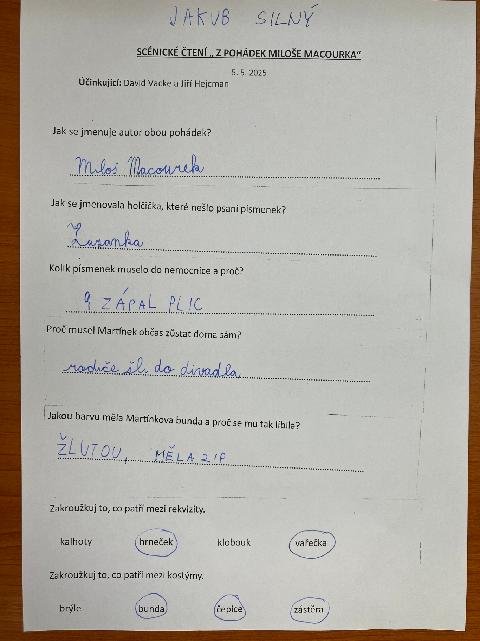 JAKUB SILNÝ
SCÉNICKÉ ČTENÍ „ Z POHÁDEK MILOŠE MACOURKA“
5. 5. 2025
Účinkující: David Vacke a Jiří Hejcman
Jak se jmenuje autor obou pohádek?
Miloš Macourek
Jak se jmenovala holčička, které nešlo psaní písmenek?
Zuzanka
Kolik písmenek muselo do nemocnice a proč?
9 ZÁPAL PLIC
Proč musel Martínek občas zůstat doma sám?
rodiče šli do divadla
Jakou barvu měla Martínkova bunda a proč se mu tak líbila?
ŽLUTOU, MĚLA ZIP
Zakroužkuj to, co patří mezi rekvizity.
kalhoty hrneček klobouk vařečka
Zakroužkuj to, co patří mezi kostýmy.
brýle bunda čepice zástěra